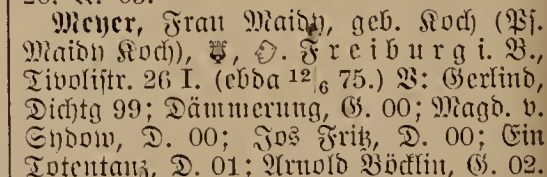 Meyer, Frau Maidy, geb. Koch (Ps.
Maidy Koch), Freiburg i. B.,
Tivolistr. 26 I. (ebda 12|6 75.) V: Gerlind,
Dichtg 99; Dämmerung, G. 00; Magd. v.
Sydow, D. 00; Jos Fritz, D. 00; Ein
Totentanz, D. 01; Arnold Böcklin, G. 02.